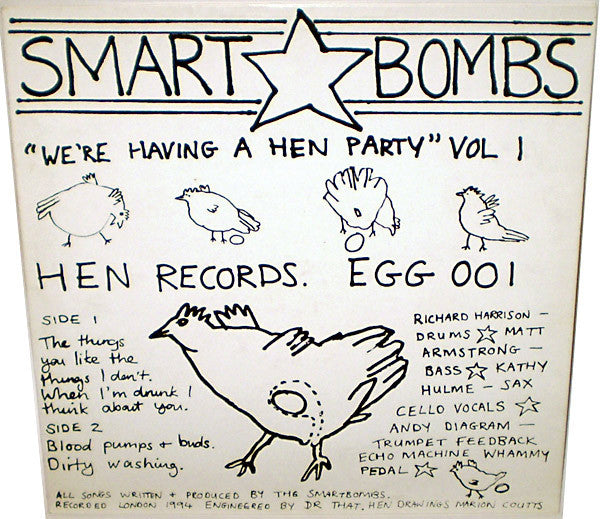 SMART BOMBS
"WE'RE HAVING A HEN PARTY" VOL 1
HEN RECORDS. EGG 001
SIDE 1
The things
you like the
things I don't.
When I'm drunk I
think about you.
SIDE 2
Blood pumps + buds.
Dirty washing.
RICHARD HARRISON –
DRUMS ☆ MATT
ARMSTRONG –
BASS ☆ KATHY
HULME – SAX
CELLO VOCALS ☆
ANDY DIAGRAM –
TRUMPET FEEDBACK
ECHO MACHINE WHAMMY
PEDAL ☆
ALL SONGS WRITTEN + PRODUCED BY THE SMARTBOMBS.
RECORDED LONDON 1994 ENGINEERED BY DR THAT. HEN DRAWINGS MARION COUTTS